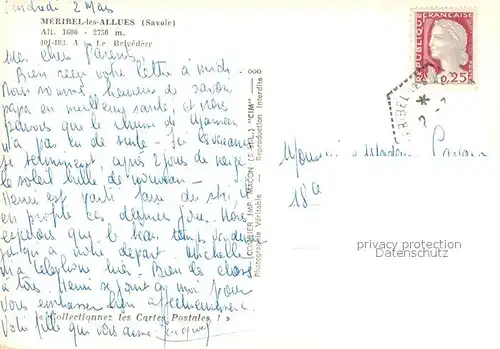 Vendredi 2 Mars
MÉRIBEL-les-ALLUES (Savoie)
Alt. 1600 - 2750 m.
Le Belvédère
Mes chers Parents,
Bien reçu votre lettre à midi -
Nous sommes heureux de savoir
papa en meilleure santé, et
pensons que le rhume de Maman
n'a pas eu de suite - Ici les vacances
se terminent, après 2 jours de neige
le soleil brille de nouveau -
Henri est parti faire du ski, il
en profite les derniers jours. Nous
espérons que le beau temps va durer
jusqu'à notre départ. Michelle
m'a téléphoné hier. Bien des choses
à tous. Henri se joint à moi pour
vous embrasser bien affectueusement.
Votre fille qui vous aime
« Collectionnez les Cartes Postales ! »
COMBIER IMP. MACON (S.-&-L.) "CIM"
Photographie Véritable - Reproduction Interdite
REPUBLIQUE FRANÇAISE
0,25
Monsieur Madame
privacy protection